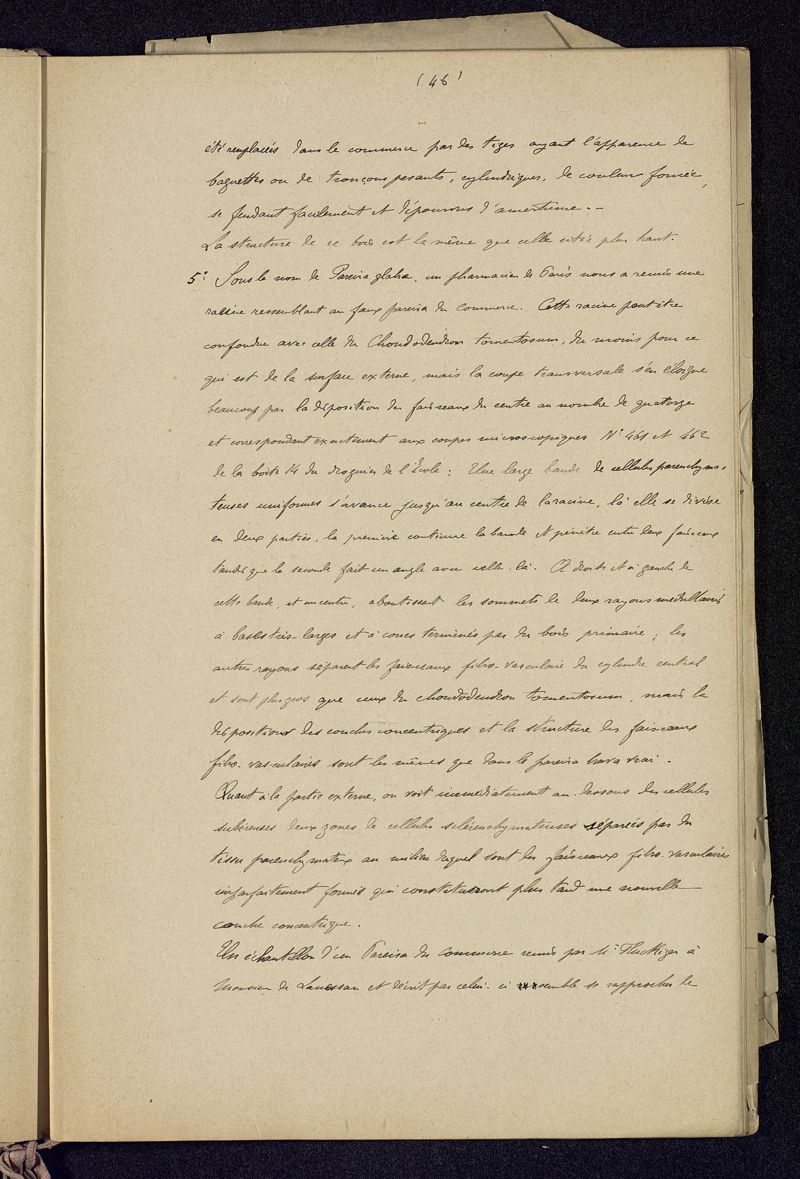 (46)
été remplacés dans le commerce par des tiges ayant l'apparence de
baguettes ou de tronçons pesants, cylindriques, de couleur foncée,
se fendant facilement et dépourvus d'amertume. _
La structure de ce bois est la même que celle citée plus haut.
5° Sous le nom de Pareira glabra, un pharmacien de Paris nous a remis une
racine ressemblant au faux pareira du commerce. Cette racine peut être
confondue avec celle du Chondodendron tomentosum, du moins pour ce
qui est de la surface externe, mais la coupe transversale s'en éloigne
beaucoup par la disposition des faisceaux du centre au nombre de quatorze
et correspondant exactement aux coupes microscopiques N° 461 et 462
de la boîte 14 du droguier de l'École : Une large bande de cellules parenchyma-
teuses uniformes s'avance jusqu'au centre de la racine, là elle se divise
en deux parties, la première continue la bande et pénètre entre deux faisceaux
tandis que la seconde fait un angle avec celle-là. A droite et à gauche de
cette bande, et au centre, aboutissent les sommets de deux rayons médullaires
à bases très-larges et à cônes terminés par du bois primaire ; les
autres rayons séparent les faisceaux fibro-vasculaires du cylindre central
et sont plus gros que ceux du chondodendron tomentosum, mais la
disposition des couches concentriques et la structure des faisceaux
fibro-vasculaires sont les mêmes que dans le pareira brava vrai.
Quant à la partie externe, on voit immédiatement au-dessous des cellules
subéreuses deux zones de cellules sclérenchymateuses séparées par du
tissu parenchymateux au milieu duquel sont des faisceaux fibro-vasculaires
imparfaitement formés qui constitueront plus tard une nouvelle
couche concentrique.
Un échantillon d'un Pareira du commerce remis par Mr Fluckiger à
Monsieur de Lanessan et décrit par celui-ci semble se rapprocher de